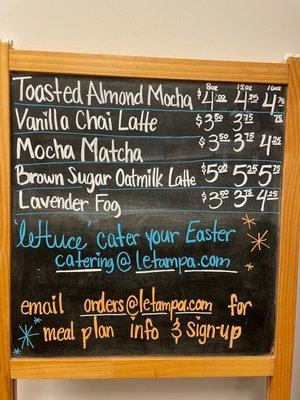 8oz 12oz 16oz
Toasted Almond Mocha $4.00 4.25 4.75
Vanilla Chai Latte $3.50 3.75
Mocha Matcha $3.50 3.75 4.25
Brown Sugar Oatmilk Latte $5.00 5.25 5.75
Lavender Fog $3.50 3.75 4.25
'lettuce' cater your Easter
catering@letampa.com
email orders@letampa.com for
meal plan info & sign-up